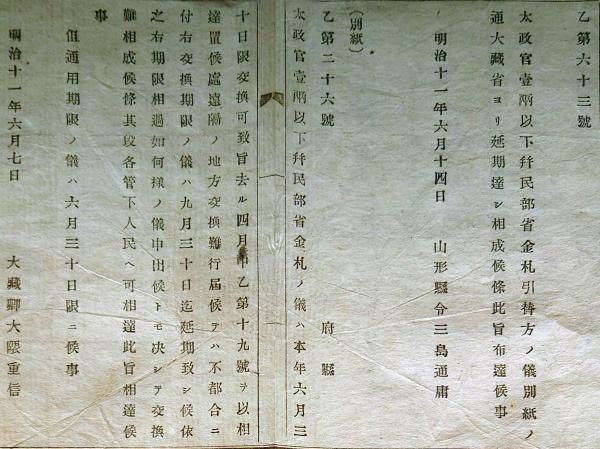 乙第六十三號
太政官壹兩以下幷民部省金札引替方ノ儀別紙ノ
通大藏省ヨリ延期達シ相成候條此旨布達候事
明治十一年六月十四日 山形縣令三島通庸
(別紙)
乙第二十六號 府縣
太政官壹兩以下幷民部省金札ノ儀ハ本年六月三
十日限交換可致旨去ル四月中乙第十九號ヲ以相
達置候處遠隔ノ地方交換難行屆候テハ不都合ニ
付右交換期限ノ儀ハ九月三十日迄延期致シ候依
之右期限相過如何樣ノ儀申出候トモ决シテ交換
難相成候條其段各管下人民ヘ可相達此旨相達候
事
但通用期限ノ儀ハ六月三十日限ニ候事
明治十一年六月七日 大藏卿大隈重信